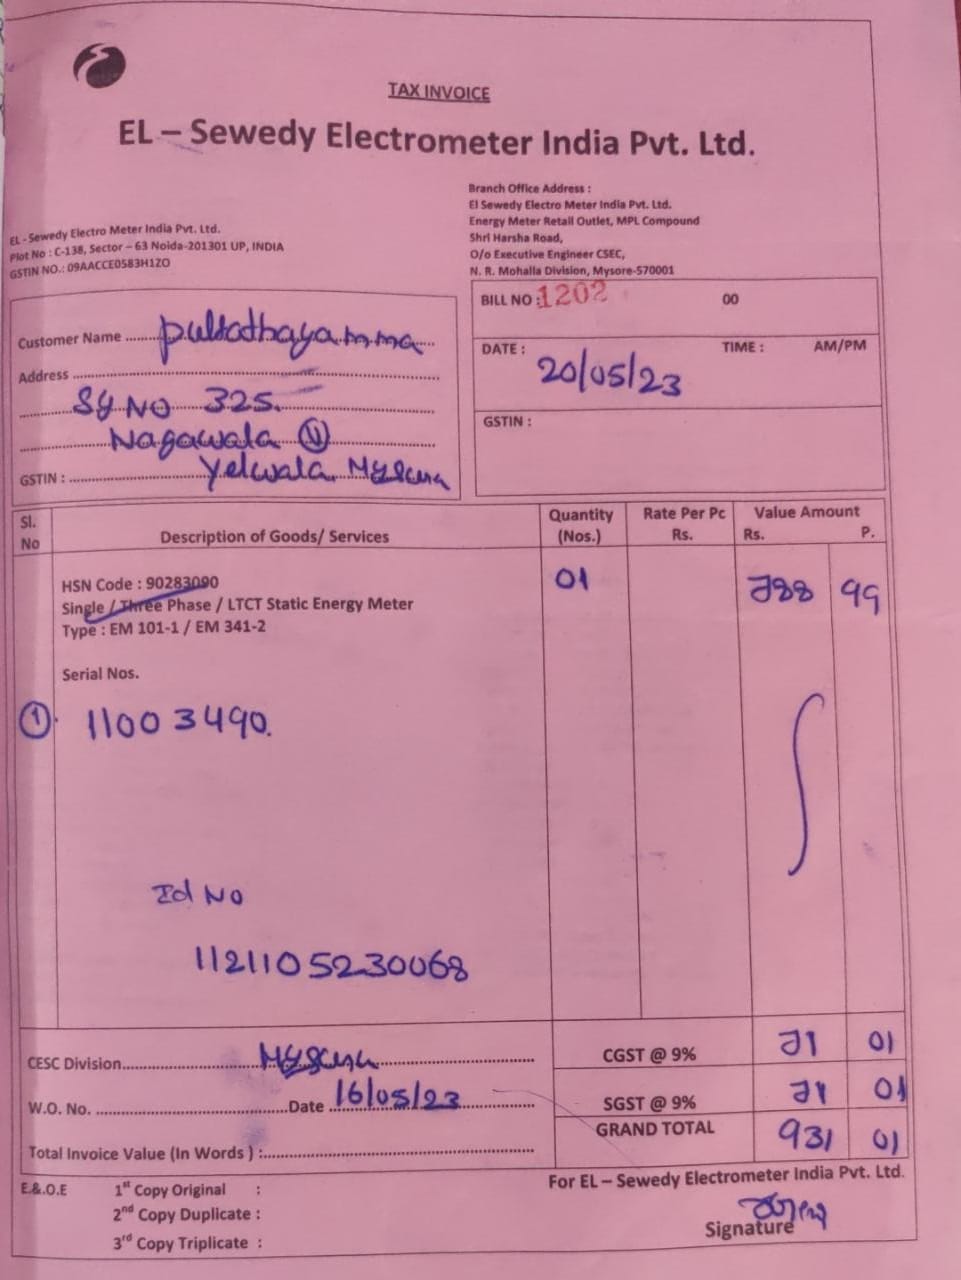 TAX INVOICE
EL – Sewedy Electrometer India Pvt. Ltd.
EL - Sewedy Electro Meter India Pvt. Ltd.
Plot No : C-138, Sector – 63 Noida-201301 UP, INDIA
GSTIN NO.: 09AACCE0583H1ZO
Branch Office Address :
El Sewedy Electro Meter India Pvt. Ltd.
Energy Meter Retail Outlet, MPL Compound
Shri Harsha Road,
O/o Executive Engineer CSEC,
N. R. Mohalla Division, Mysore-570001
Customer Name
Address
SY NO 325.
Nagawala (V)
GSTIN : Yelwala
BILL NO : 1202 00
DATE : 20/05/23 TIME : AM/PM
GSTIN :
Sl. No Description of Goods/ Services Quantity (Nos.) Rate Per Pc Rs. Value Amount Rs. P.
HSN Code : 90283090 01 788 99
Single / Three Phase / LTCT Static Energy Meter
Type : EM 101-1 / EM 341-2
Serial Nos.
1 11003490.
Id No
1121105230068
CESC Division
CGST @ 9% 71 01
W.O. No. Date 16/05/23
SGST @ 9% 71 01
GRAND TOTAL 931 01
Total Invoice Value (In Words ) :
E.& O.E 1st Copy Original :
2nd Copy Duplicate :
3rd Copy Triplicate :
For EL – Sewedy Electrometer India Pvt. Ltd.
Signature